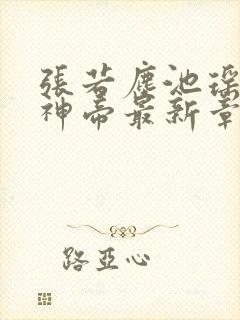 張若塵池瑤
神帝最新章
路亞心